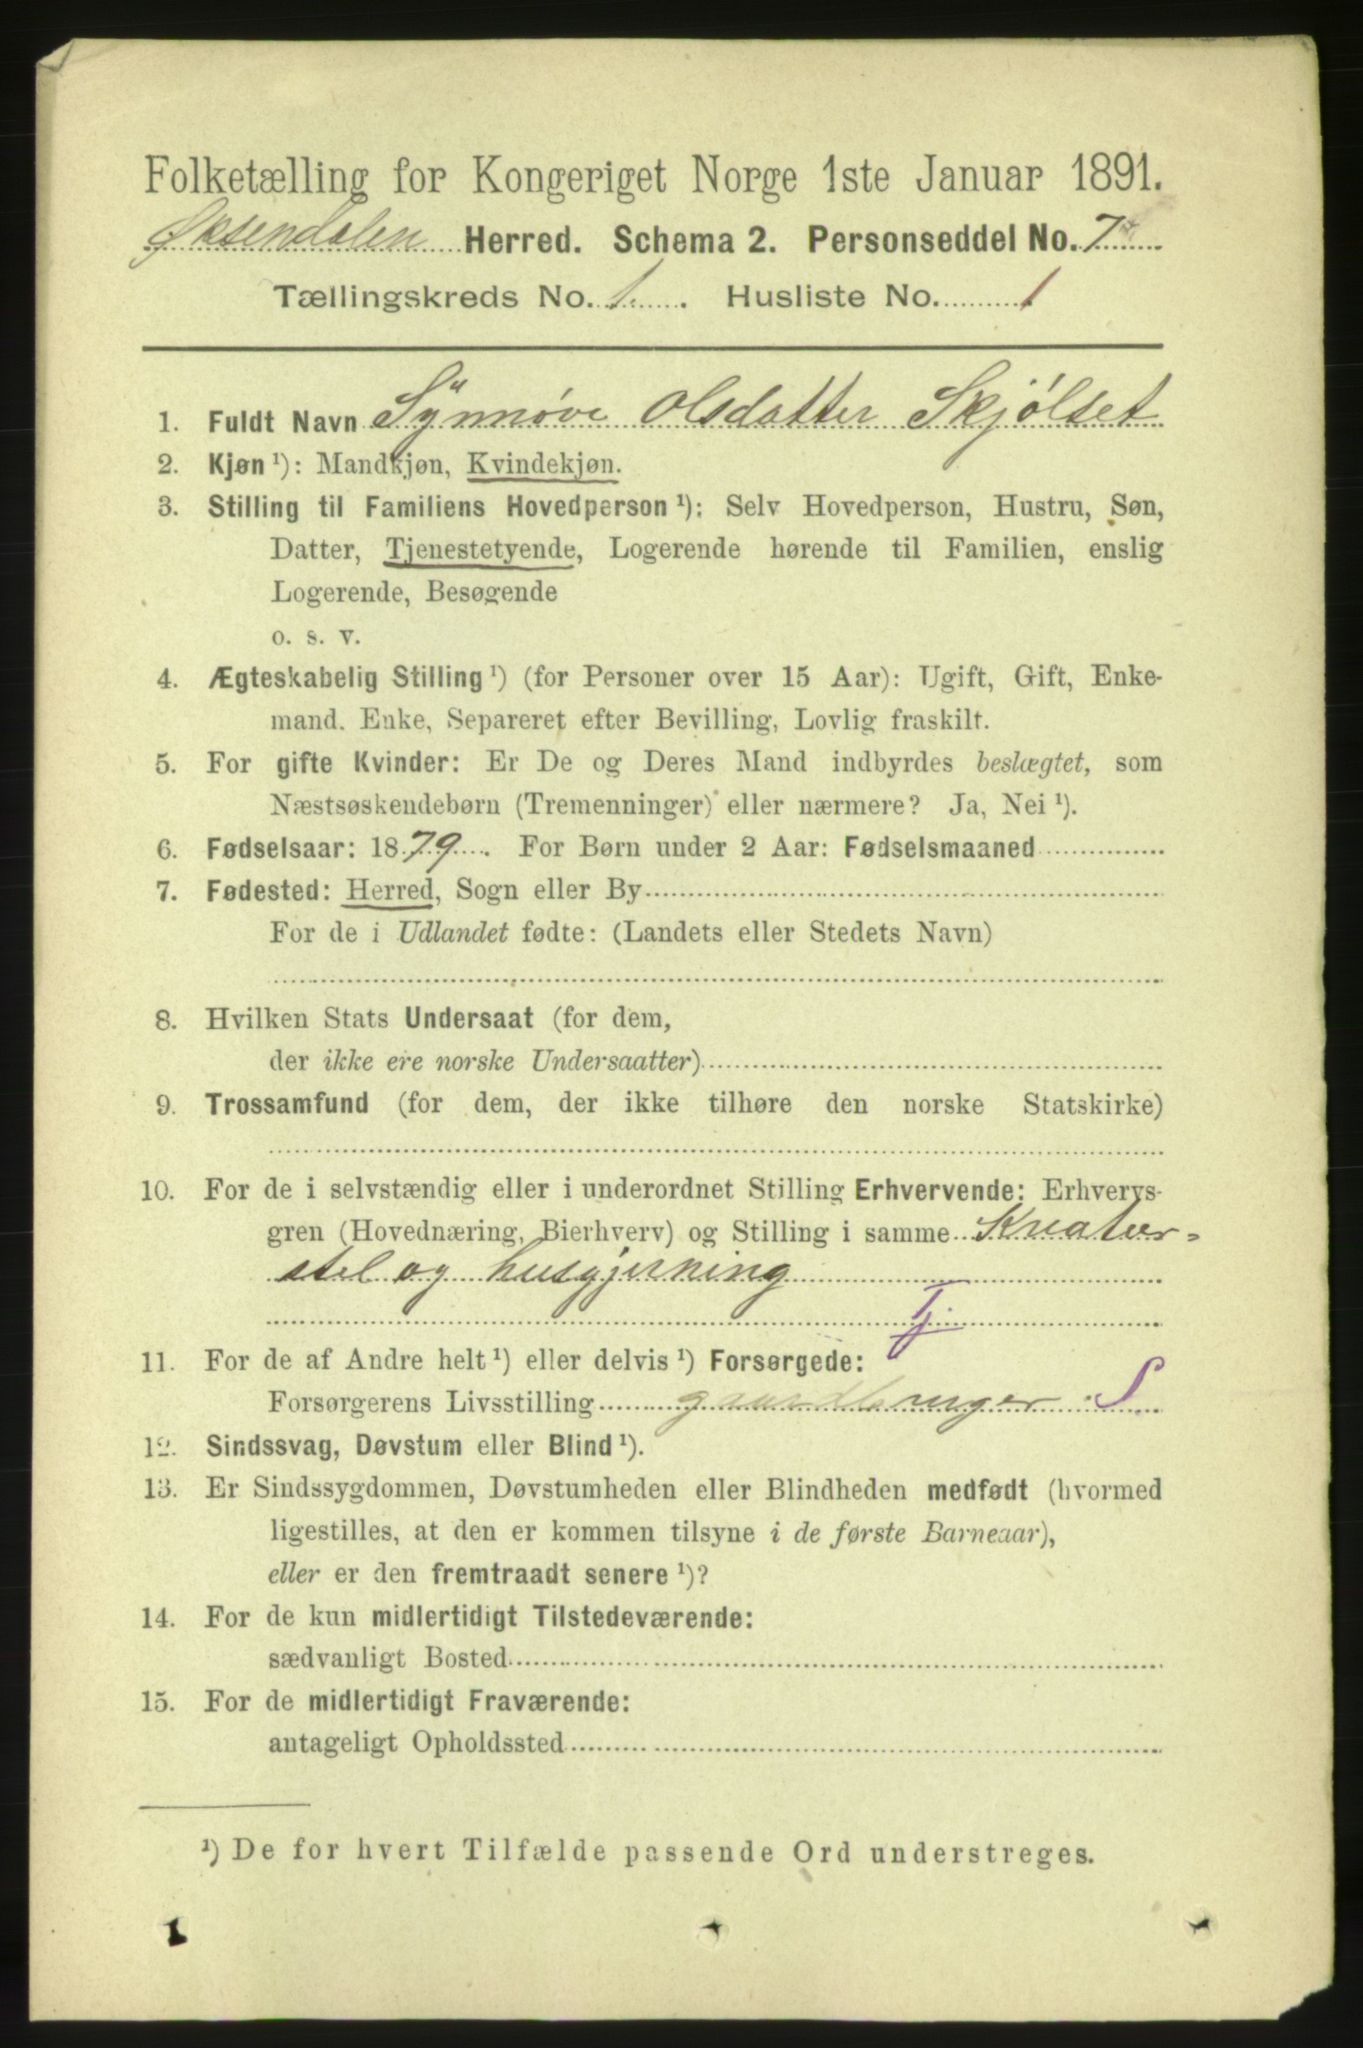 Folketælling for Kongeriget Norge 1ste Januar 1891.
Øksendalen Herred. Schema 2. Personseddel No. 7
Tællingskreds No. 1. Husliste No. 1
1. Fuldt Navn Synnøve Olsdatter Skjølset
2. Kjøn ¹): Mandkjøn, Kvindekjøn.
3. Stilling til Familiens Hovedperson ¹): Selv Hovedperson, Hustru, Søn,
Datter, Tjenestetyende, Logerende hørende til Familien, enslig
Logerende, Besøgende
o. s. v.
4. Ægteskabelig Stilling ¹) (for Personer over 15 Aar): Ugift, Gift, Enke-
mand. Enke, Separeret efter Bevilling, Lovlig fraskilt.
5. For gifte Kvinder: Er De og Deres Mand indbyrdes beslægtet, som
Næstsøskendebørn (Tremenninger) eller nærmere? Ja, Nei ¹).
6. Fødselsaar: 1879. For Børn under 2 Aar: Fødselsmaaned
7. Fødested: Herred, Sogn eller By
For de i Udlandet fødte: (Landets eller Stedets Navn)
8. Hvilken Stats Undersaat (for dem,
der ikke ere norske Undersaatter)
9. Trossamfund (for dem, der ikke tilhøre den norske Statskirke)
10. For de i selvstændig eller i underordnet Stilling Erhvervende: Erhvervs-
gren (Hovednæring, Bierhverv) og Stilling i samme Kreatur-
stel og husgjerning
Tj.
11. For de af Andre helt ¹) eller delvis ¹) Forsørgede:
Forsørgerens Livsstilling gaardbruger S
12. Sindssvag, Døvstum eller Blind ¹).
13. Er Sindssygdommen, Døvstumheden eller Blindheden medfødt (hvormed
ligestilles, at den er kommen tilsyne i de første Barneaar),
eller er den fremtraadt senere ¹)?
14. For de kun midlertidigt Tilstedeværende:
sædvanligt Bosted
15. For de midlertidigt Fraværende:
antageligt Opholdssted
¹) De for hvert Tilfælde passende Ord understreges.